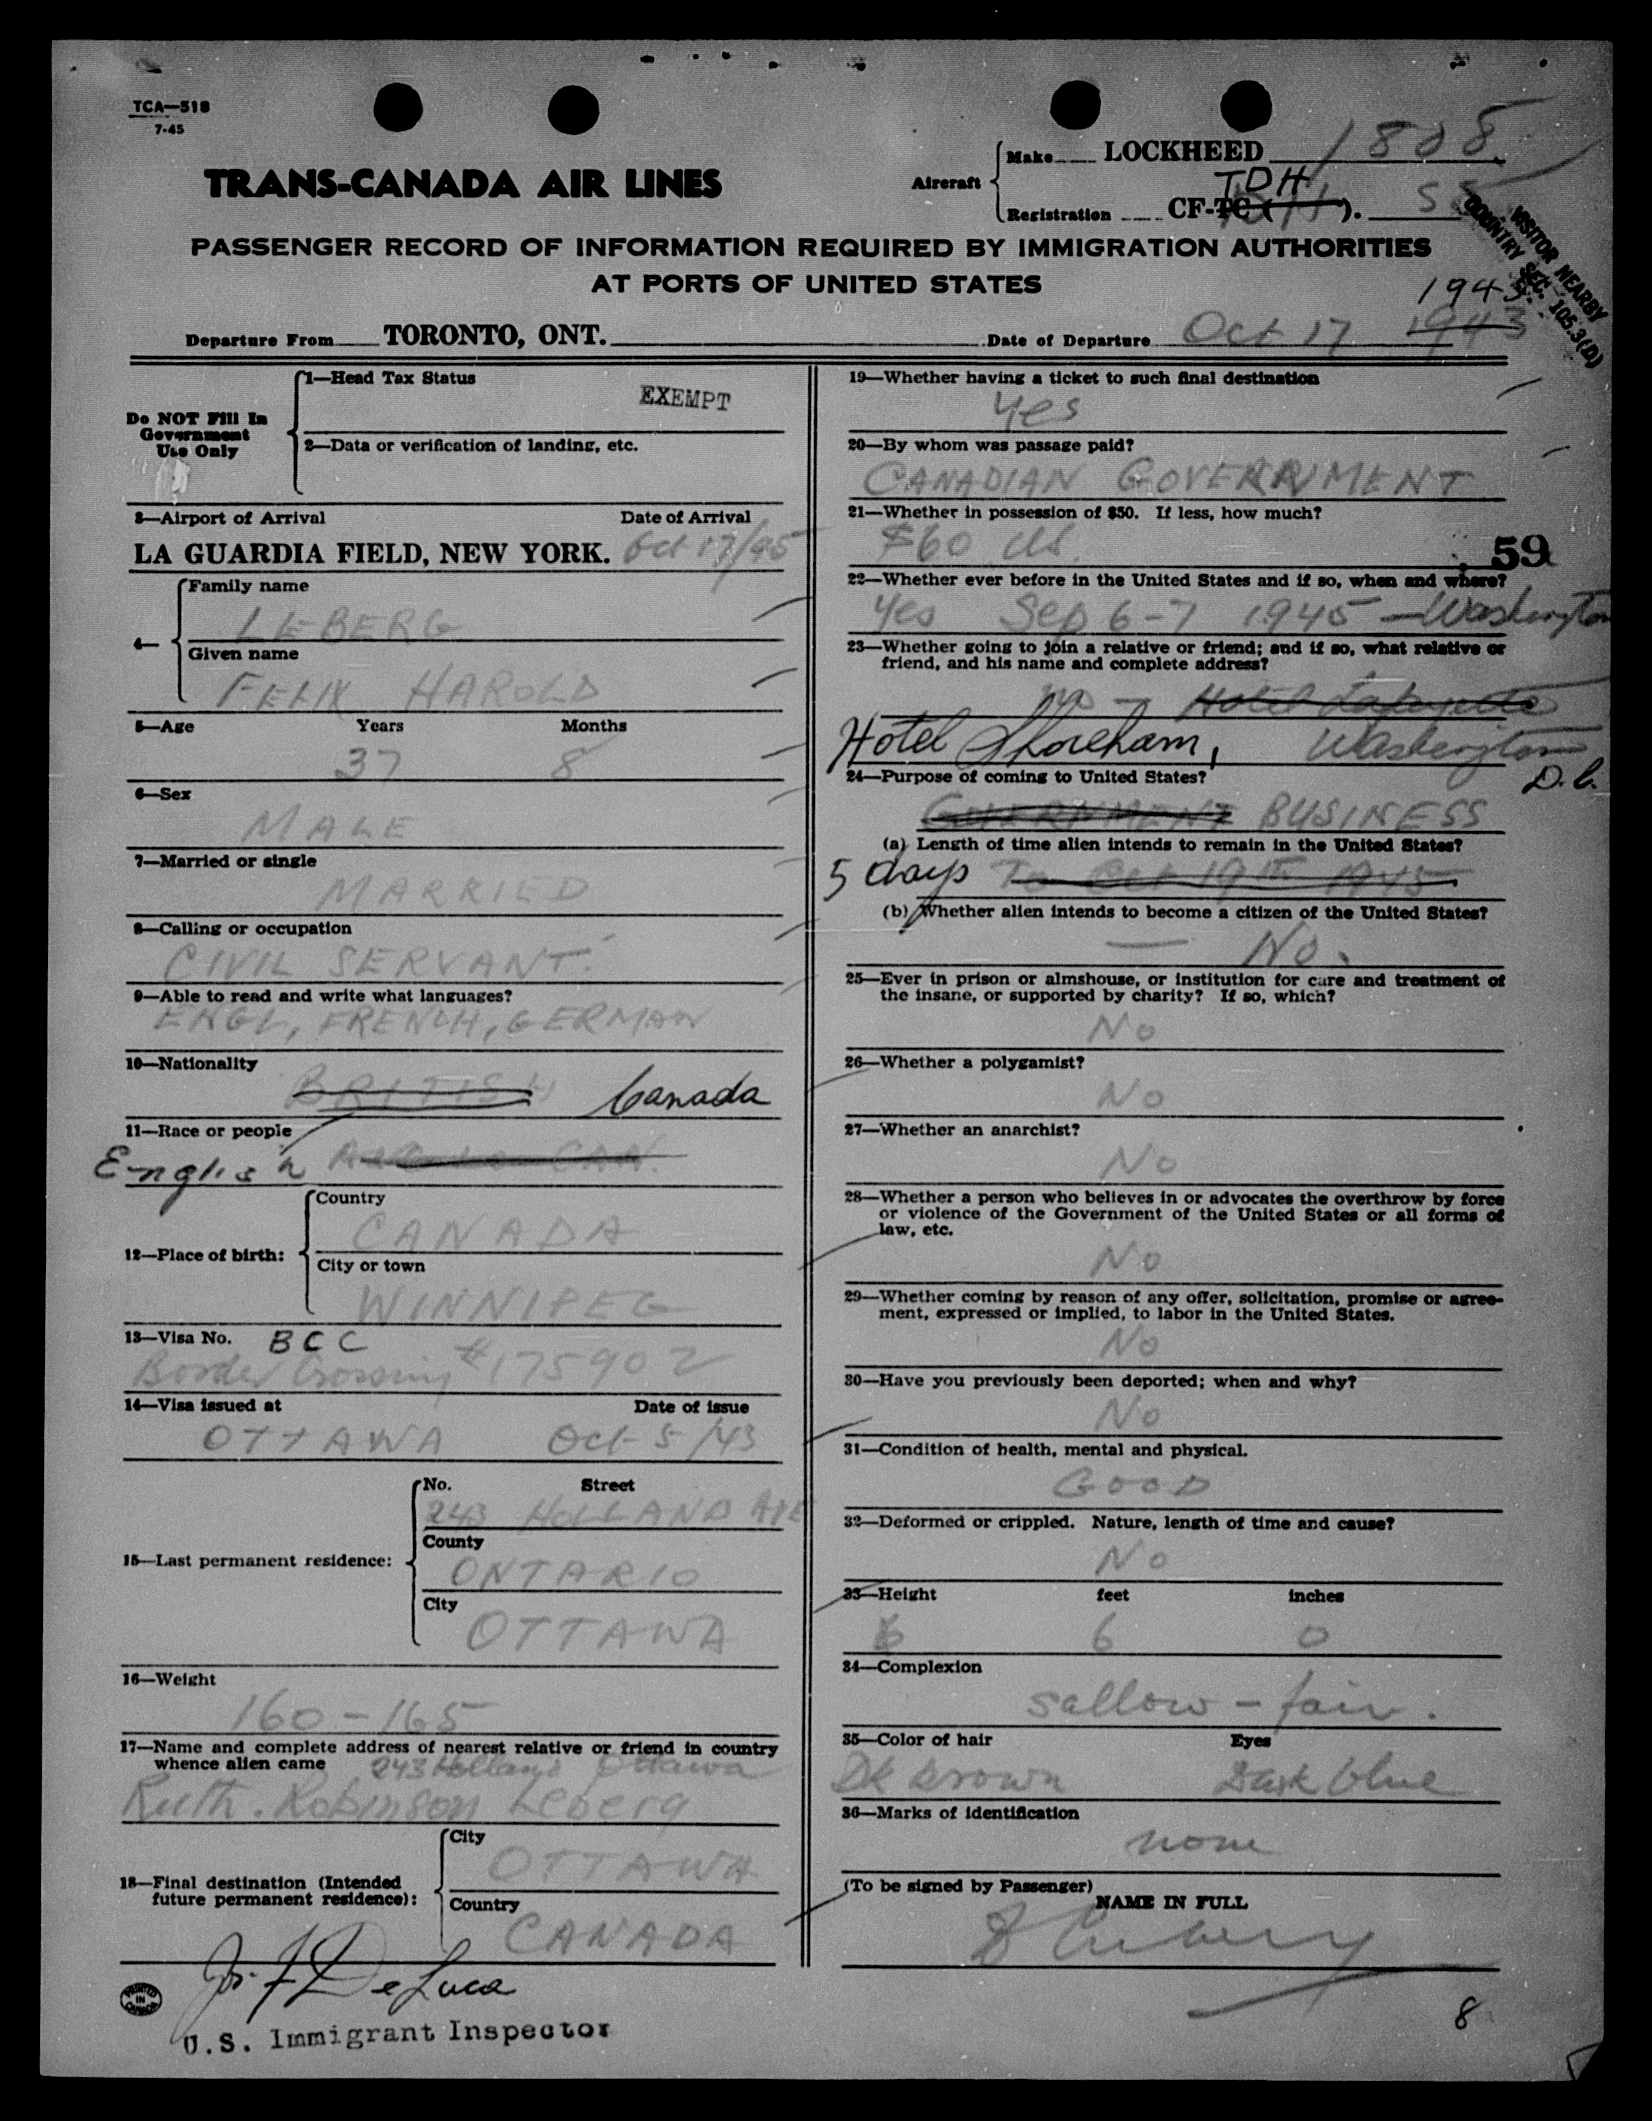 TCA—518
7-45
TRANS-CANADA AIR LINES
Aircraft
Make LOCKHEED 1808
TDH
Registration CF-TC ( ).
VISITOR NEARBY
COUNTRY SEC. 105.3(D)
PASSENGER RECORD OF INFORMATION REQUIRED BY IMMIGRATION AUTHORITIES
AT PORTS OF UNITED STATES
1945
Departure From TORONTO, ONT. Date of Departure Oct 17 1943
Do NOT Fill In
Government
Use Only
1—Head Tax Status
EXEMPT
2—Data or verification of landing, etc.
3—Airport of Arrival Date of Arrival
LA GUARDIA FIELD, NEW YORK. Oct 17/45
4—
Family name
LEBERG
Given name
FELIX HAROLD
5—Age Years Months
37 8
6—Sex
MALE
7—Married or single
MARRIED
8—Calling or occupation
CIVIL SERVANT.
9—Able to read and write what languages?
ENGL, FRENCH, GERMAN
10—Nationality
BRITISH Canada
11—Race or people
English
12—Place of birth:
Country
CANADA
City or town
WINNIPEG
13—Visa No. BCC
Border Crossing #175902
14—Visa issued at Date of issue
OTTAWA Oct 5/43
15—Last permanent residence:
No. Street
243 HOLLAND AVE
County
ONTARIO
City
OTTAWA
16—Weight
160-165
17—Name and complete address of nearest relative or friend in country
whence alien came 243 Holland Ottawa
Ruth. Robinson Leberg
18—Final destination (Intended
future permanent residence):
City
OTTAWA
Country
CANADA
De Luca
U.S. Immigrant Inspector
PRINTED
IN
CANADA
19—Whether having a ticket to such final destination
Yes
20—By whom was passage paid?
CANADIAN GOVERNMENT
21—Whether in possession of $50. If less, how much?
$60 US.
59
22—Whether ever before in the United States and if so, when and where?
Yes Sep 6-7 1945 — Washington
23—Whether going to join a relative or friend; and if so, what relative or
friend, and his name and complete address?
no — Hotel Lafayette
Hotel Shoreham, Washington
D.C.
24—Purpose of coming to United States?
GOVERNMENT BUSINESS
(a) Length of time alien intends to remain in the United States?
5 days To Oct 19th 1945
(b) Whether alien intends to become a citizen of the United States?
— No.
25—Ever in prison or almshouse, or institution for care and treatment of
the insane, or supported by charity? If so, which?
No
26—Whether a polygamist?
No
27—Whether an anarchist?
No
28—Whether a person who believes in or advocates the overthrow by force
or violence of the Government of the United States or all forms of
law, etc.
No
29—Whether coming by reason of any offer, solicitation, promise or agree-
ment, expressed or implied, to labor in the United States.
No
30—Have you previously been deported; when and why?
No
31—Condition of health, mental and physical.
GOOD
32—Deformed or crippled. Nature, length of time and cause?
No
33—Height feet inches
6 0
34—Complexion
sallow - fair.
35—Color of hair Eyes
Dk brown Dark blue
36—Marks of identification
none
(To be signed by Passenger)
NAME IN FULL
8